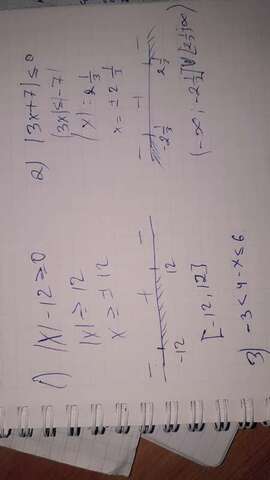 1) |x| - 12 ≥ 0
|x| ≥ 12
x ≥ ± 12
- + -
-12 12
[-12, 12]
2) |3x+7| ≤ 0
|3x| ≤ |-7|
|x| = 2 1/3
x = ± 2 1/3
-2 1/3 2 1/3
3) -3 < 4 - x ≤ 6